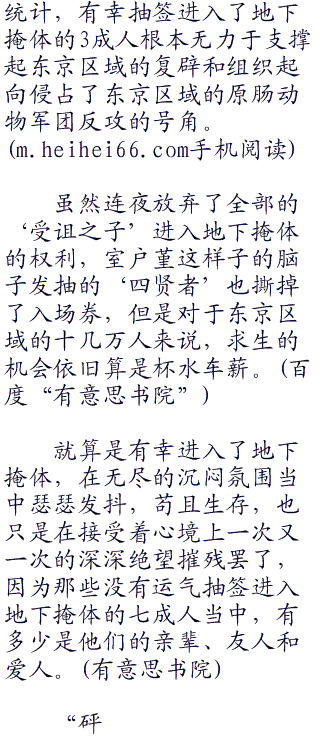 统计，有幸抽签进入了地下
掩体的3成人根本无力于支撑
起东京区域的复辟和组织起
向侵占了东京区域的原肠动
物军团反攻的号角。
(m.heihei66.com手机阅读)
虽然连夜放弃了全部的
‘受诅之子’进入地下掩体
的权利，室户堇这样子的脑
子发抽的‘四贤者’也撕掉
了入场券，但是对于东京区
域的十几万人来说，求生的
机会依旧算是杯水车薪。(百
度“有意思书院”)
就算是有幸进入了地下
掩体，在无尽的沉闷氛围当
中瑟瑟发抖，苟且生存，也
只是在接受着心境上一次又
一次的深深绝望摧残罢了，
因为那些没有运气抽签进入
地下掩体的七成人当中，有
多少是他们的亲辈、友人和
爱人。(有意思书院)
“砰